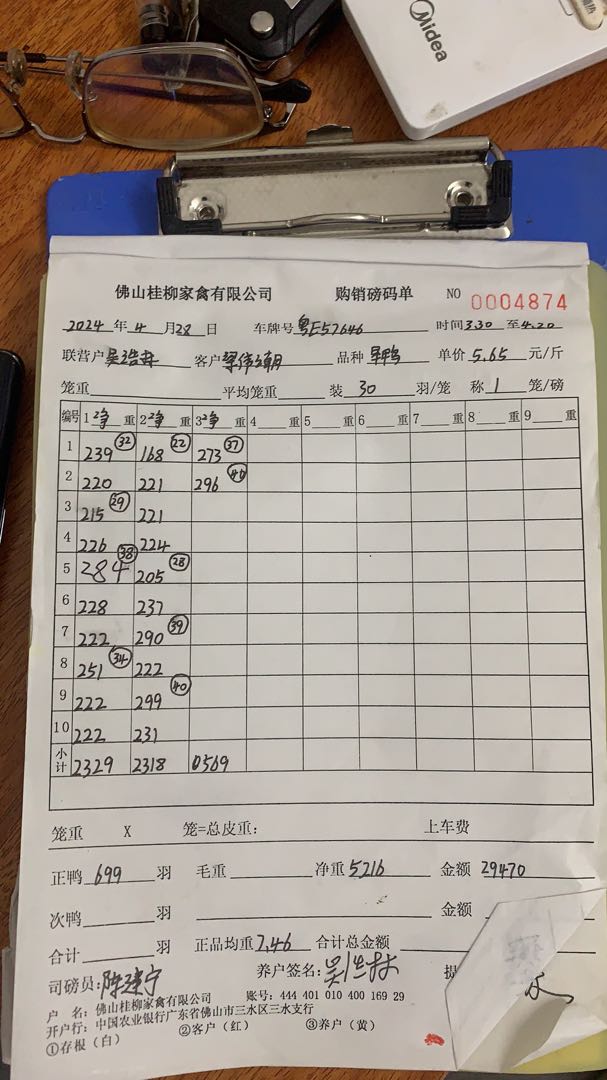 Midea
佛山桂柳家禽有限公司 购销磅码单 NO 0004874
2024 年 4 月 28 日 车牌号 粤E57646 时间 3.30 至 4.20
联营户 客户 品种 单价 5.65 元/斤
笼重 平均笼重 装 30 羽/笼 称 1 笼/磅
编号 1 净 重 2 净 重 3 净 重 4 重 5 重 6 重 7 重 8 重 9 重
1 239 32 168 22 273 37
2 220 221 296 40
3 215 29 221
4 226 224
5 284 38 205 28
6 228 237
7 222 290 39
8 251 34 222
9 222 299 40
10 222 231
小计 2329 2318 0569
笼重 X 笼=总皮重: 上车费
正鸭 699 羽 毛重 净重 5216 金额 29470
次鸭 羽 金额
合计 羽 正品均重 7.46 合计总金额
司磅员: 陈建宁 养户签名: 提
户 名: 佛山桂柳家禽有限公司 账号: 444 401 010 400 169 29
开户行: 中国农业银行广东省佛山市三水区三水支行
①存根（白） ②客户（红） ③养户（黄）